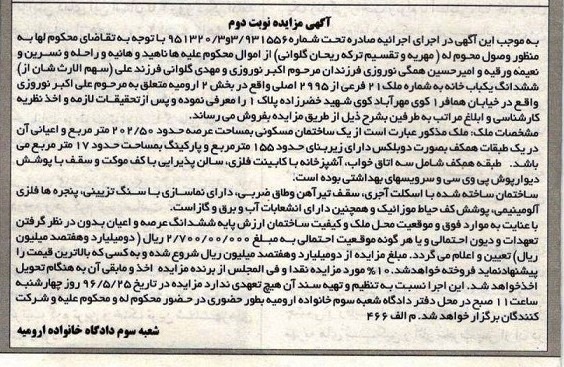 آگهی مزایده نوبت دوم
به موجب این آگهی در اجرای اجرائیه صادره تحت شماره ۳/۹۳۱۵۵۶و۹۵۱۳۲۰/۳ با توجه به تقاضای محکوم لها به
منظور وصول محوم له ( مهریه و تقسیم ترکه ریحان گلوانی) از اموال محکوم علیه ها ناهید و هانیه و راحله و نسرین و
نعیمه و رقیه و امیرحسین همگی نوروزی فرزندان مرحوم اکبر نوروزی و مهدی گلوانی فرزند علی (سهم الارث شان از)
ششدانگ یکباب خانه به شماره ملک ۲۱ فرعی از ۲۹۹۵ اصلی واقع در بخش ۲ ارومیه متعلق به مرحوم علی اکبر نوروزی
واقع در خیابان همافر ۱ کوی مهرآباد کوی شهید خضرزاده پلاک ۱ را معرفی نموده و پس از تحقیقات لازمه و اخذ نظریه
کارشناسی و ابلاغ مراتب به طرفین بشرح ذیل از طریق مزایده بفروش می رساند.
مشخصات ملک: ملک مذکور عبارت است از یک ساختمان مسکونی بمساحت عرصه حدود ۲۰۲/۵۰ متر مربع و اعیانی آن
در یک طبقات همکف بصورت دوبلکس دارای زیربنای حدود ۱۵۵ مترمربع و پارکینگ بمساحت حدود ۱۷ متر مربع می
باشد. طبقه همکف شامل سه اتاق خواب، آشپزخانه با کابینت فلزی، سالن پذیرایی با کف موکت و سقف با پوشش
دیوارپوش پی وی سی و سرویسهای بهداشتی بوده است.
ساختمان ساخته شده با اسکلت آجری، سقف تیرآهن وطاق ضربی، دارای نماسازی با سنگ تزیینی، پنجره ها فلزی
آلومینیمی، پوشش کف حیاط موزائیک و همچنین دارای انشعابات آب و برق و گاز است.
با عنایت به موارد فوق و موقعیت محل ملک و کیفیت ساختمان ارزش پایه ششدانگ عرصه و اعیان بدون در نظر گرفتن
تعهدات و دیون احتمالی و یا هر گونه موقعیت احتمالی به مبلغ ۲/۷۰۰/۰۰/۰۰۰ ریال ( دومیلیارد وهفتصد میلیون
ریال) تعیین و اعلام می گردد. مبلغ مزایده از دومیلیارد وهفتصد میلیون ریال شروع شده و به کسی که بالاترین قیمت را
پیشنهاد نماید فروخته خواهد شد. ۱۰% مورد مزایده نقدا و فی المجلس از برنده مزایده اخذ و مابقی آن به هنگام تحویل
اخذ خواهد شد. این اجرا نسبت به تنظیم و تهیه سند آن هیچ تعهدی ندارد مزایده در تاریخ ۹۶/۵/۲۵ روز چهارشنبه
ساعت ۱۱ صبح در محل دفتر دادگاه شعبه سوم خانواده ارومیه بطور حضوری در حضور محکوم له و محکوم علیه و شرکت
کنندگان برگزار خواهد شد. م الف ۴۶۶
شعبه سوم دادگاه خانواده ارومیه